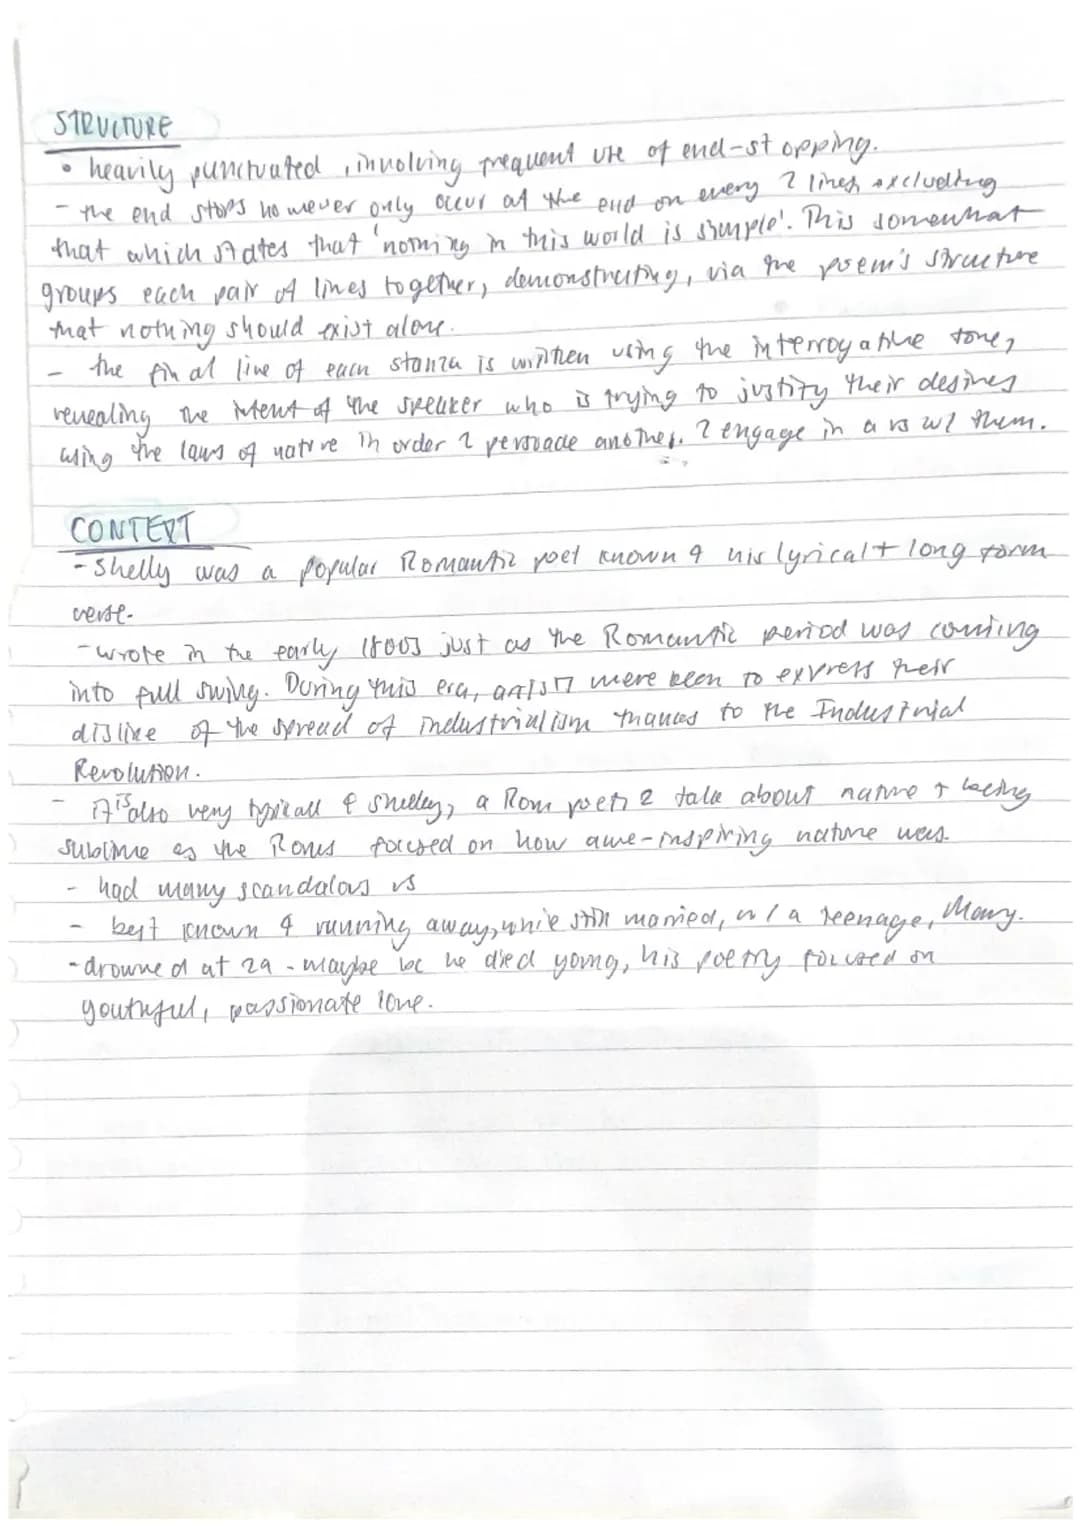 STRUCTURE
• heavily punctuated, involving frequent use of end-stopping.
- the end stops however only occur at the end on every 2 lines, excluding
that which states that 'nothing in this world is simple'. This somewhat
groups each pair of lines together, demonstrating, via the poem's structure
that nothing should exist alone.
- the final line of each stanza is written using the interrogative tone,
revealing the intent of the speaker who is trying to justify their desires
using the laws of nature in order 2 persuade another. 2 engage in a rs w/ them.
CONTEXT
- Shelly was a popular Romantic poet known 4 his lyrical + long form
verse.
- wrote in the early 1800s just as the Romantic period was coming
into full swing. During this era, artists were keen to express their
dislike of the spread of industrialism thanks to the Industrial
Revolution.
- it is also very typical 4 Shelley, a Rom poet, 2 talk about nature + being
sublime as the Roms focused on how awe-inspiring nature was.
- had many scandalous rs
- best known 4 running away, while still married, w/ a teenage, Mary.
- drowned at 29 - maybe bc he died young, his poetry focused on
youthful, passionate love.